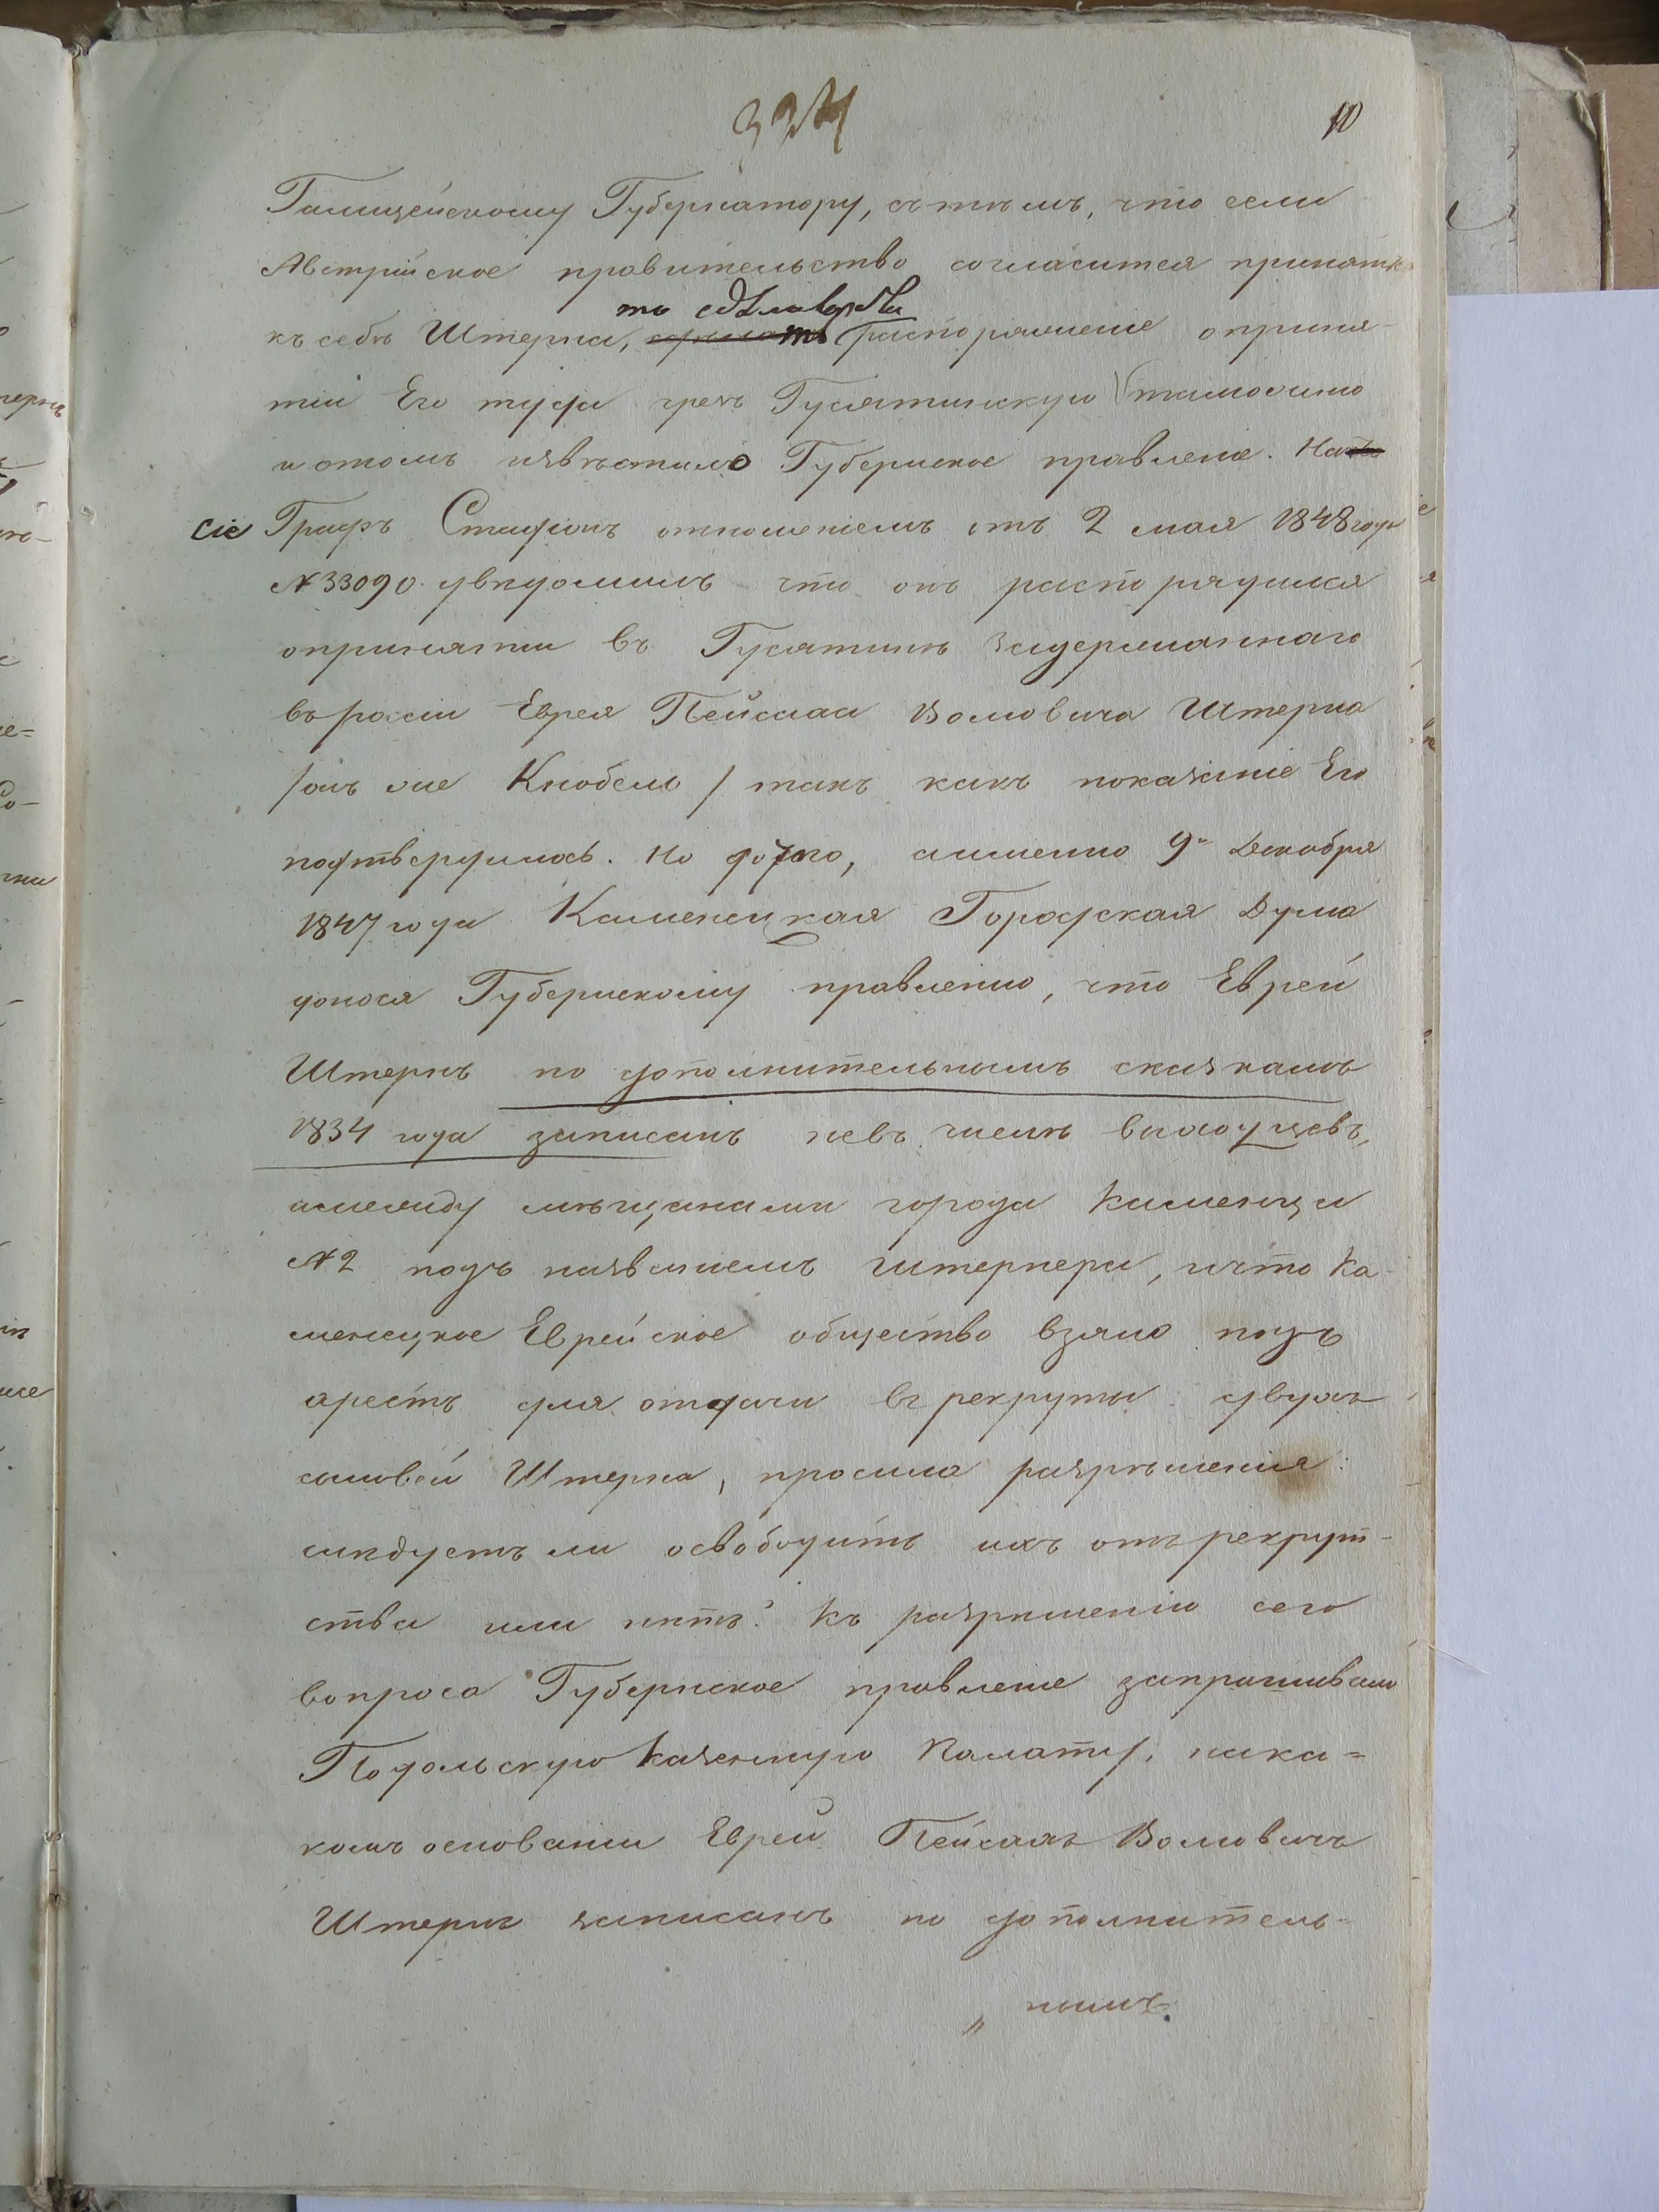 324
10
Галицейскому Губернатору, стѣмъ, что если
Австрійское правительство согласится принять
то сдѣлавъ бы
къ себѣ Штерна, распоряженіе оприня-
тіи Его туда чрезъ Гусятинскую таможню
и отомъ извѣстило Губернское правленіе. На
сіе Графъ Стадіонъ отношеніемъ отъ 2 мая 1848 года
№ 33090. увѣдомилъ что онъ распорядился
опринятіи въ Гусятинѣ задержаннаго
въ россіи Еврея Пейсаха Волковича Штерна
/онъ же Кнобель / такъ какъ показаніе Его
подтвердилось. Но до того, аименно 9го Декабря
1847 года Каменецкая Городская Дума
донося Губернскому правленію, что Еврей
Штернъ по дополнительнымъ сказкамъ
1834 года записанъ невъ числѣ владѣльцевъ,
амежду мѣщанами города Каменца
№ 2 подъ названіемъ Штернера, ичто Ка-
менецкое Еврейское общество взяло подъ
арестъ для отдачи въ рекруты двухъ
сыновей Штерна, просила разрѣшенія:
слѣдуетъ ли освободить ихъ отъ рекрут-
ства или нѣтъ? Къ разрѣшенію сего
вопроса Губернское правленіе запрашивало
Подольскую Казенную Палату, нака=
комъ основаніи Еврей Пейсахъ Волковичъ
Штернъ записанъ по дополнитель-
„ нымъ.